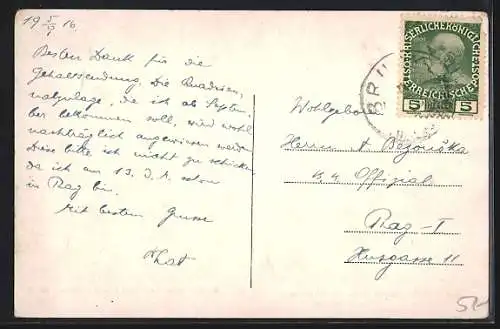 19 5/9 10
Besten Dank für die
Gehaltsendung. Die
zulage, da ich als
ber bekommen soll, wird wohl
nachträglich angewiesen werd
Diese bitte ich nicht zu schicken
da ich am 13. d. M. schon
in Prag bin.
Mit besten Grüsse
BRÜ
KAISERLICHE KÖNIGLICHE
ÖSTERREICHISCHE
5 5
Wohlgebor
Herrn A Bezouška
k. k. Offizial
Prag - I
Husgasse 11